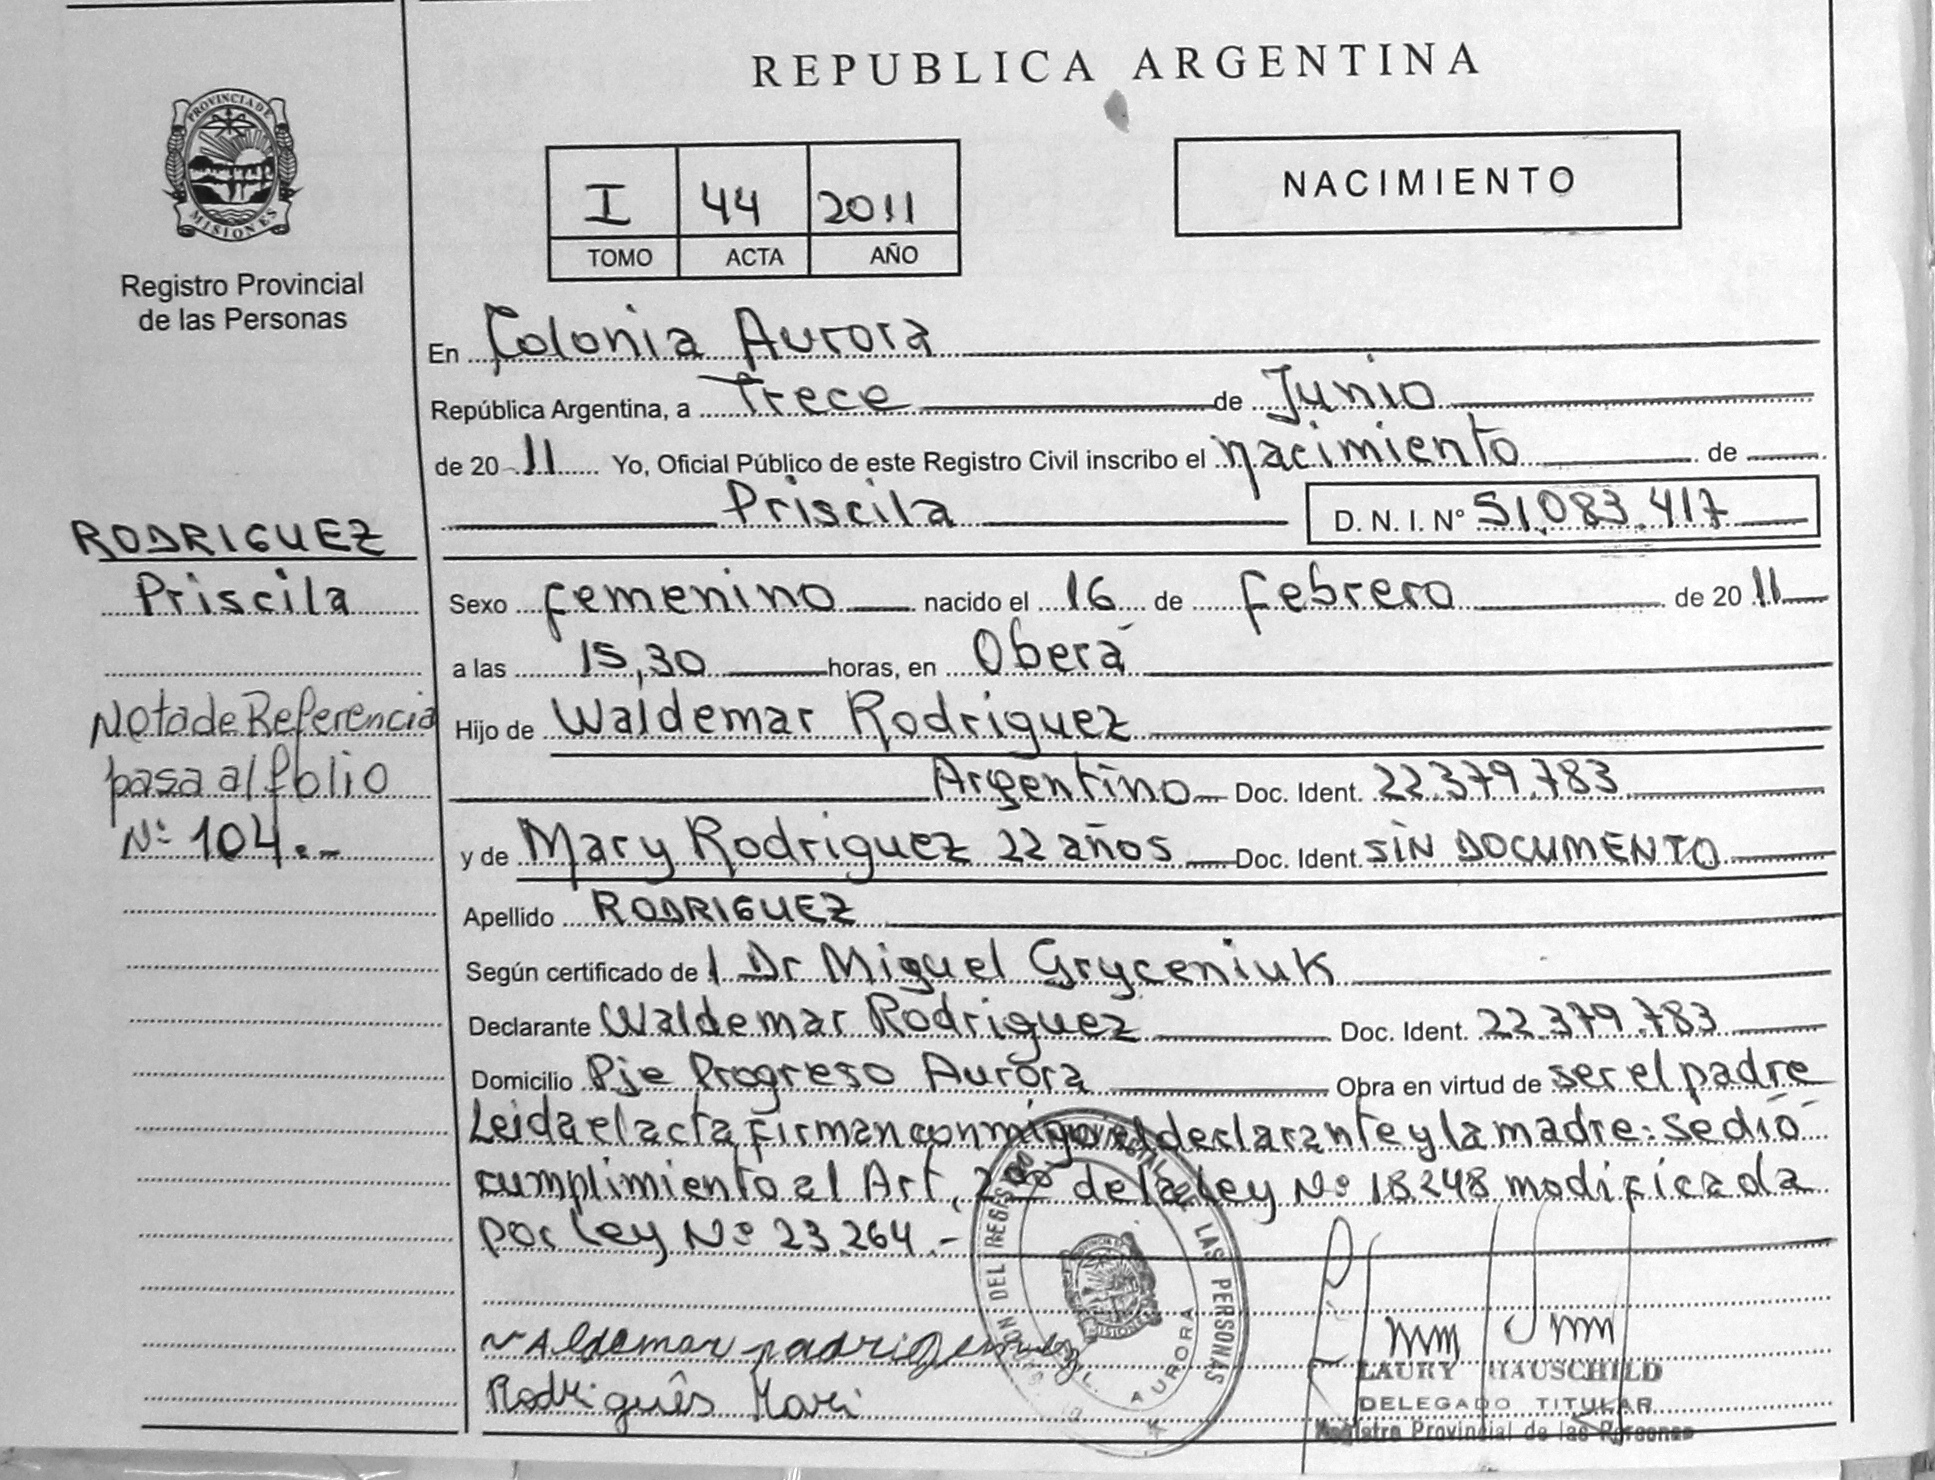 REPUBLICA ARGENTINA
PROVINCIA DE
MISIONES
Registro Provincial
de las Personas
I 44 2011
TOMO ACTA AÑO
NACIMIENTO
En Colonia Aurora
República Argentina, a Trece de Junio
de 2011 Yo, Oficial Público de este Registro Civil inscribo el nacimiento de
Priscila D. N. I. Nº 51.083.417
RODRIGUEZ
Priscila
Nota de Referencia
pasa al folio
Nº 104.-
Sexo femenino nacido el 16 de febrero de 2011
a las 15,30 horas, en Oberá
Hijo de Waldemar Rodriguez
Argentino Doc. Ident. 22.379.783
y de Mary Rodriguez 22 años Doc. Ident. SIN DOCUMENTO
Apellido RODRIGUEZ
Según certificado de l Dr Miguel Gryceniuk
Declarante Waldemar Rodriguez Doc. Ident. 22.379.783
Domicilio Pje Progreso Aurora Obra en virtud de ser el padre
Leida el acta firman conmigo el declarante y la madre. Se dió
cumplimiento al Art. 2do de la Ley Nº 18248 modificada
por Ley Nº 23.264.-
LAS PERSONAS
AURORA
Rodriguês Mari
LAURY HAUSCHILD
DELEGADO TITULAR
Registro Provincial de las Personas